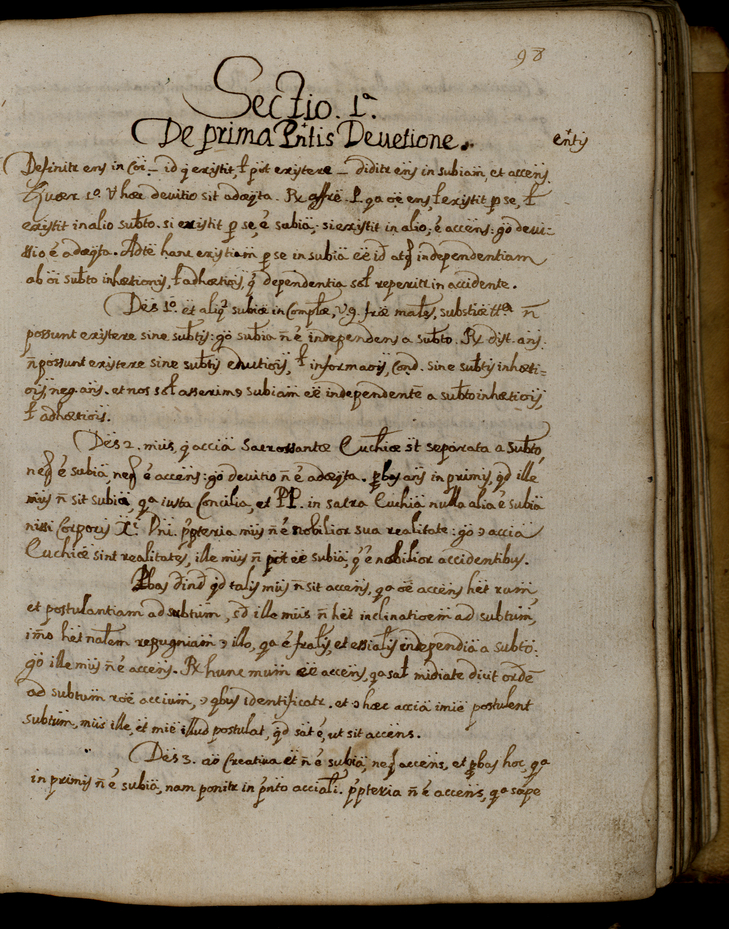 98
Sectio. 1ª
De prima Entis Devitione.
entis
Definitr ens in Coi _ id q̃ existit, ł pot existere _ diditr ens in subiam̃, et accens.
Quær 1º hæc devitio sit adæqta. Rx affirẽ. P. qa oẽ ens, ł existit p se, ł
existit in alio subto. si existit p se, ẽ subia; si existit in alio, ẽ accens: gº devi-
ssio ẽ adæqta. Adte hanc existiam p se in subia eẽ id atq independentiam
ab oi subto inhætionis, ł adhætionis, q̃ dependentia sol reperitr in accidente.
Des 1º. et aliq subiæ in Complæ, v.g. fræ males, substiæ ñ
possunt existere sine subtis: gº subia ñ ẽ independens a subto. Rx dist. ans.
ñ possunt existere sine subtis eductionis, ł informaõis, Cond. sine subtis inhæti-
onis, neg. ans. et nos sol asserimº subiam eẽ independentẽ a subto inhætionis,
ł adhætionis.
Des 2. mus, q̃ accia Sacrossantæ Euchiæ st separata a subto,
neq ẽ subia, neq ẽ accens: gº devitio ñ ẽ adæqta. pbas ans in primis, qd ille
mus ñ sit subia, qa iusta Concilia, et PP. in sacra Euchia nulla alia ẽ subia
nissi Corporis Xi Dni. ppteria mus ñ ẽ nobilior sua realitate: gº ɔ accia
Euchiæ sint realitates, ille mus ñ pot eẽ subia, q̃ ẽ nobilior accidentibus.
Pbas dind qd talis mus ñ sit accens, qa oẽ accens het rum
et postulantiam ad subtum, sd ille mus ñ het inclinatioem ad subtum,
imo het nalem repugniam ɔ illo, qa ẽ fralis, et essialis independia a subto:
gº ille mus ñ ẽ accens. Rx hunc mum eẽ accens, qa sal midiate dicit ordẽ
ad subtum roẽ accium, ɔ qbus identificatr. et ɔ hæc accia imie postulent
subtum, mus ille, et mie illud postulat, qd sat ẽ, ut sit accens.
Des 3. aõ Creativa et ñ ẽ subia, neq accens, et pbas hoc, qa
in primis ñ ẽ subia, nam ponitr in pñto acciali. ppteria ñ ẽ accens, qa sæpe